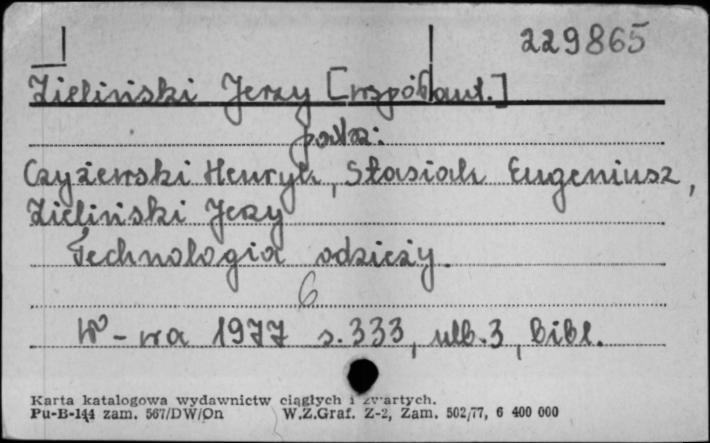 229865
Zieliński Jerzy [współaut.]
patrz:
Czyżewski Henryk, Stasiak Eugeniusz,
Zieliński Jerzy
Technologia odzieży.
6
W-wa 1977 s. 333, ulb. 3, bibl.
Karta katalogowa wydawnictw ciągłych i zwartych.
Pu-B-144 zam. 567/DW/On W.Z.Graf. Z-2, Zam. 502/77, 6 400 000